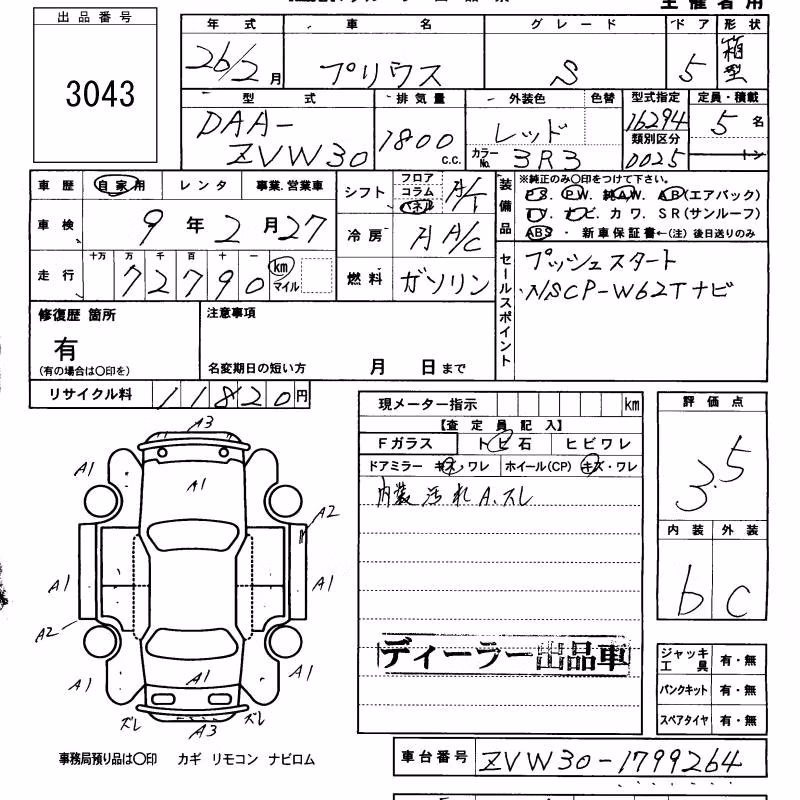 主催者用
出品番号
3043
年式 車名 グレード ドア 形状
26/2月 プリウス S 5 箱型
型式 排気量 外装色 色替 型式指定 定員・積載
DAA-ZVW30 1800c.c. レッド 16294 5名
カラーNo. 3R3 類別区分 0025 トン
車歴 自家用 レンタ 事業.営業車
シフト フロア コラム パネル A/T
装備品 ※純正のみ〇印をつけて下さい。
PS. PW. 純AW. AB(エアバック)
TV. ナビ. カワ. SR(サンルーフ)
ABS ・ 新車保証書←(注)後日送りのみ
車検 9年2月27
冷房 A/C
走行 十万 万 千 百 十 一
72790 km マイル
燃料 ガソリン
セールスポイント
プッシュスタート
NSCP-W62Tナビ
修復歴 箇所 注意事項
有
(有の場合は〇印を) 名変期日の短い方 月 日まで
リサイクル料 11820円
現メーター指示 km
評価点
3.5
【査定員記入】
Fガラス トビ石 ヒビワレ
ドアミラー キズ・ワレ ホイール(CP) キズ・ワレ
内装汚れA.スレ
内装 外装
b C
A3
A1 A1
A2
A1 A1
A2
A1 A1
ズレ A3 ズレ
ディーラー出品車
ジャッキ工具 有・無
パンクキット 有・無
スペアタイヤ 有・無
事務局預り品は〇印 カギ リモコン ナビロム
車台番号 ZVW30-1799264